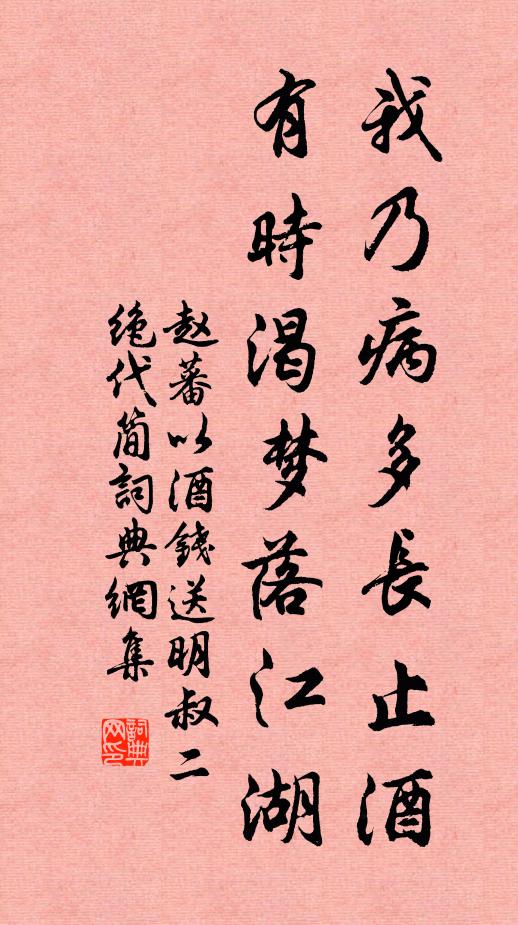 我乃病多長止酒
有時渴梦落江湖
赵蕃以酒錢送明叔二
绝代简詞典網集
詞典网印